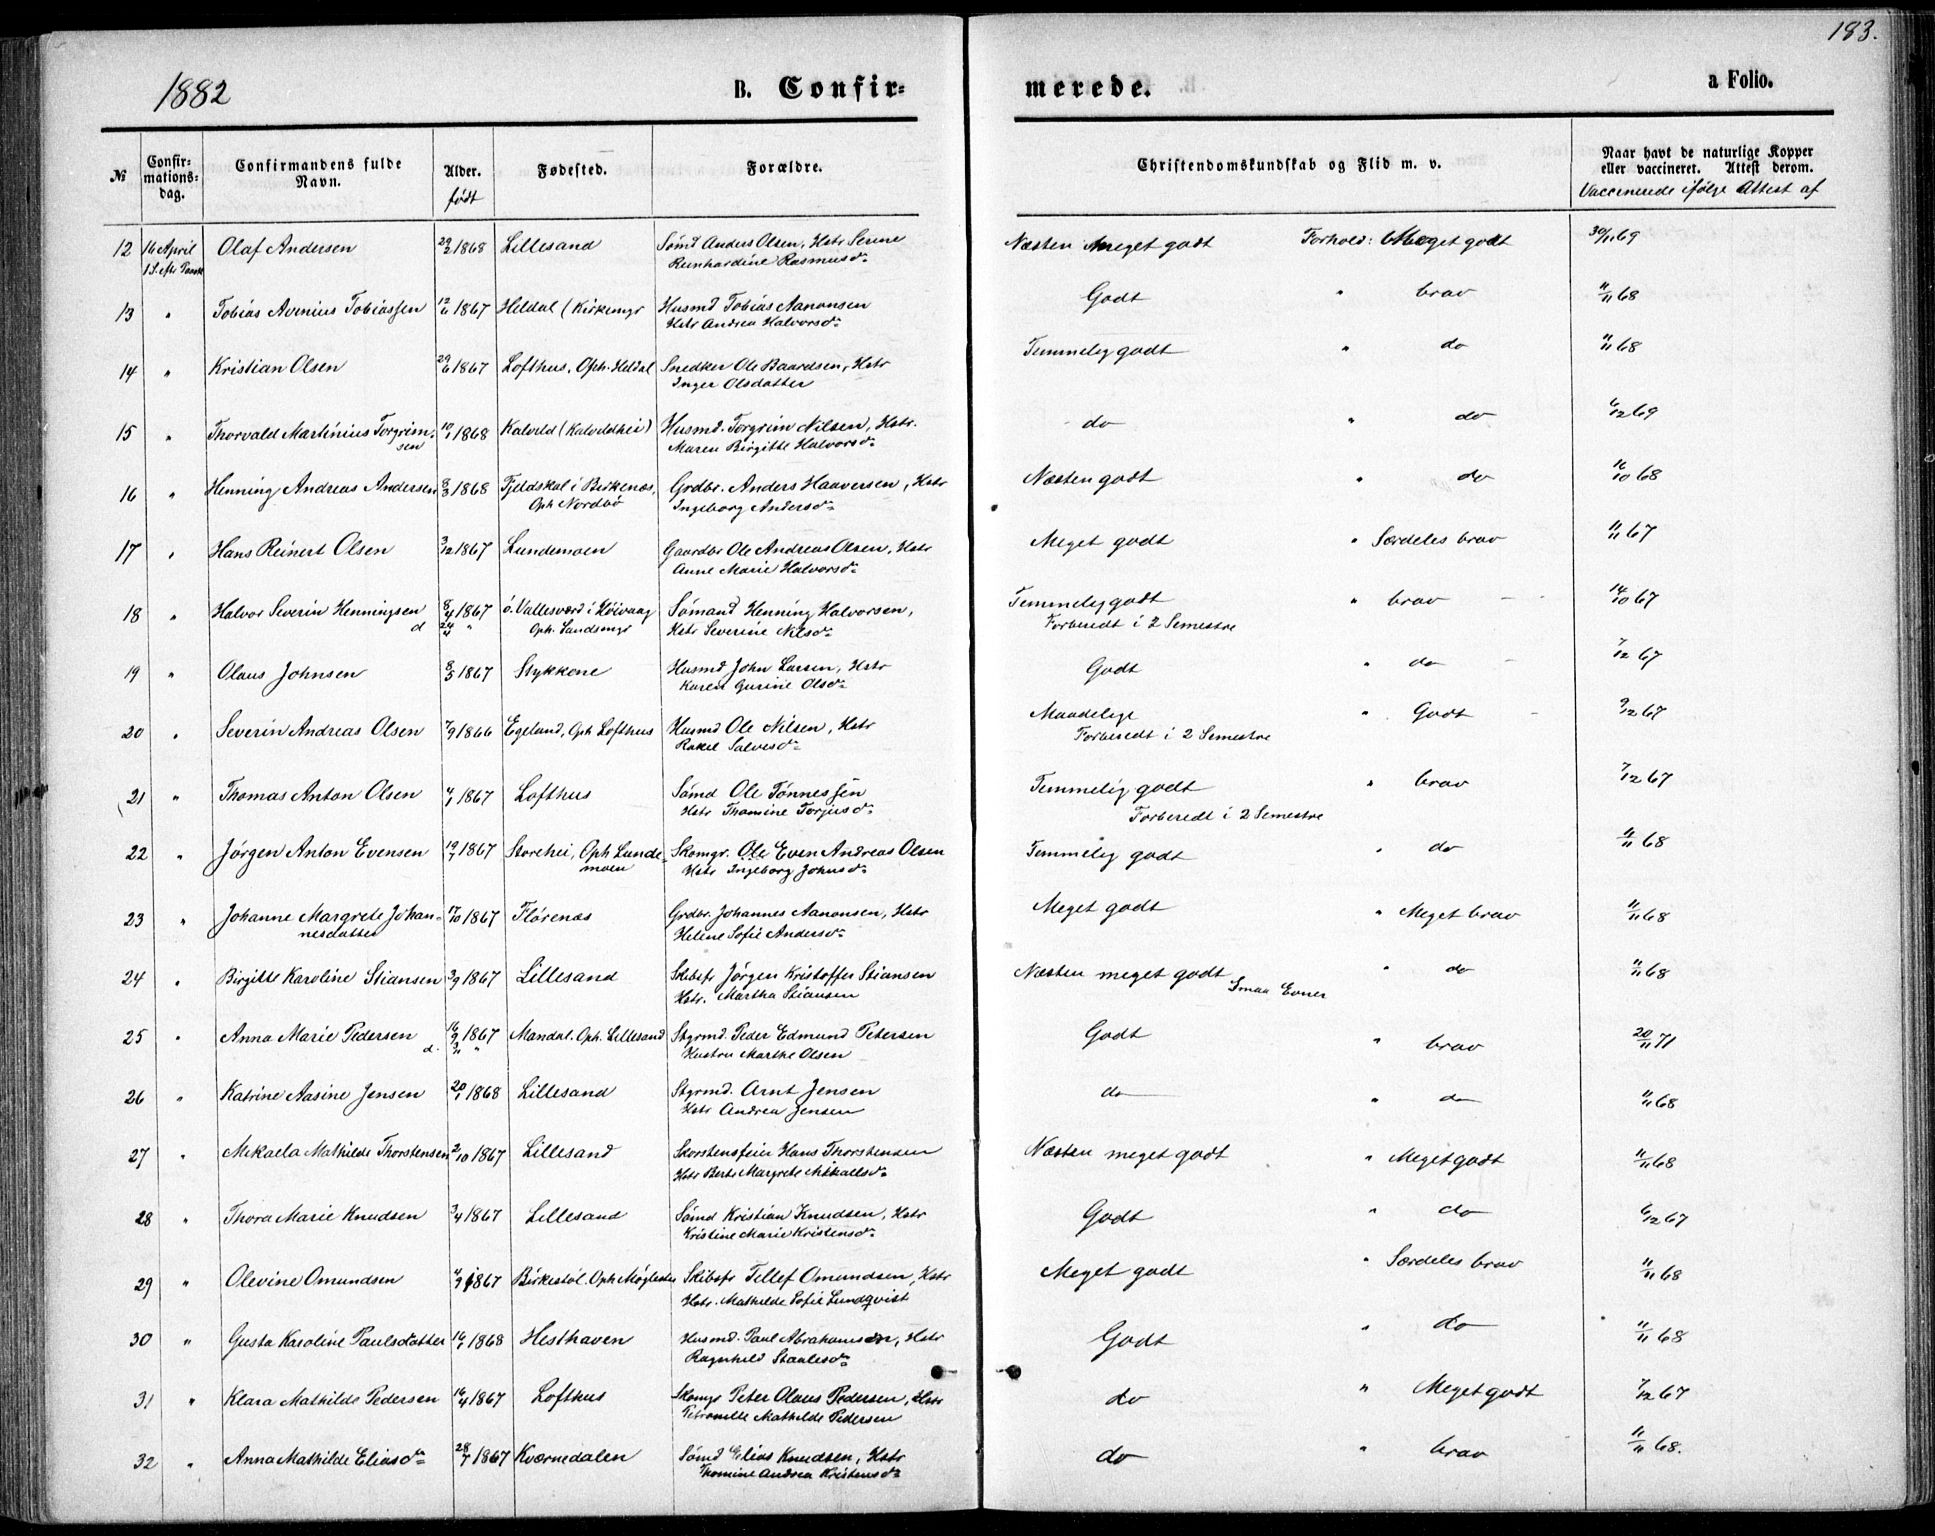 183.
1882 B. Confir= merede. a Folio.
№ Confirmations=dag. Confirmandens fulde Navn. Alder. født Fødested. Forældre. Christendomskundskab og Flid m. v. Naar havt de naturlige Kopper eller vaccineret. Attest derom. Vaccinerede ifølge Attest af
12 16 April Olaf Andersen 29/2 1868 Lillesand Sømd Anders Olsen, Hstr Serine Næsten meget godt Forhold: Meget godt 30/11 69
1 S. eftr Paask Reinhardine Rasmusdr
13 " Tobias Avenius Tobiassen 12/6 1867 Heldal (Kirkemyr Husmd Tobias Aanonsen Godt " brav 11/11 68
Hstr Andrea Halvorsdr
14 " Kristian Olsen 29/6 1867 Lofthus, Oph. Heldal Snedker Ole Baardsen, Hstr Temmelig godt " do 11/11 68
Inger Olsdatter
15 " Thorvald Martinius Torgrim= 10/1 1868 Kalveld (Kalveldhei) Husmd. Torgrim Nilsen, Hstr. do " do 6/12 69
sen Maren Birgitte Halvorsdr
16 " Henning Andreas Andersen 8/3 1868 Fjeldskal i Birkenæs, Grdbr. Anders Haaversen, Hstr Næsten godt " do 16/10 68
Oph Nordbø Ingeborg Andersdr
17 " Hans Reinert Olsen 3/12 1867 Lundemoen Gaardbr Ole Andreas Olsen, Hstr Meget godt " Særdeles brav 11/11 67
Anne Marie Halvorsdr
18 " Halvor Severin Henningsen 8/4 1867 ö. Vallesværd i Høivaag Sømand Henning Halvorsen, Temmelig godt " brav 14/10 67
d 24/4 " Oph. Sandsmyr Hstr Severine Nilsdr Forberedt i 2 Semestre
19 " Olaus Johnsen 8/5 1867 Stykkene Husmd John Larsen, Hstr Godt " do 7/12 67
Karen Gurine Olsdr
20 " Severin Andreas Olsen 7/9 1866 Egeland, Oph Lofthus Husmd Ole Nilsen, Hstr Maadelige " Godt 9/12 67
Rakel Salvesdr Forberedt i 2 Semestre
21 " Thomas Anton Olsen 4/1 1867 Lofthus Sømd Ole Tønnessen Temmelig godt " brav 7/12 67
Hstr Thomine Torjusdr Forberedt i 2 Semestre
22 " Jørgen Anton Evensen 19/7 1867 Storehei, Oph Lunde= Skomgr. Ole Even Andreas Olsen Temmelig godt " do 11/11 68
moen Hstr Ingeborg Johnsdr
23 " Johanne Margrete Johan= 17/10 1867 Flørenæs Grdbr. Johannes Aanonsen, Hstr Meget godt " Meget brav 11/11 68
nesdatter Helene Sofie Andersdr
24 " Birgitte Karoline Stiansen 3/9 1867 Lillesand Skibsfr Jørgen Kristoffer Stiansen Næsten meget godt " do 11/11 68
Hstr. Martha Stiansen Smaa Evner
25 " Anna Marie Pedersen 16/9 1867 Mandal. Oph. Lillesand Styrmd. Peder Edmund Petersen Godt " brav 20/11 71
d. 3/11 " Hustru Marthe Olsen
26 " Katrine Aasine Jensen 20/1 1868 Lillesand Styrmd. Arnt Jensen do " do 11/11 68
Hstr Andrea Jensen
27 " Mikaela Mathilde Thorstensen 2/10 1867 Lillesand Skorstensfeier Hans Thorstensen Næsten meget godt " Meget godt 11/11 68
Hstr Berte Margrete Mikaelsdr
28 " Thora Marie Knudsen 3/4 1867 Lillesand Sømd Kristian Knudsen, Hstr Godt " do 6/12 67
Kristine Marie Kristensdr
29 " Olevine Omundsen 4/9 1867 Birkestøl. Oph Møglestu Skibsfr Tellef Omundsen, Hstr Meget godt " Særdeles brav 11/11 68
Hstr. Mathilde Sofie Lundqvist
30 " Gusta Karoline Paulsdatter 16/1 1868 Hesthaven Husmd. Paul Abrahamsen, Hstr Godt " do 11/11 68
Ragnhild Staalesdr
31 " Klara Mathilde Pedersen 16/4 1867 Lofthus Skomgr Peter Olaus Pedersen, Hstr do " Meget godt 7/12 67
Petronille Mathilde Pedersen
32 " Anna Mathilde Eliasdr 28/7 1867 Kværnedalen Sømd Elias Knudsen, Hstr do " brav 11/11 68.
Thomine Andrea Kristensdr